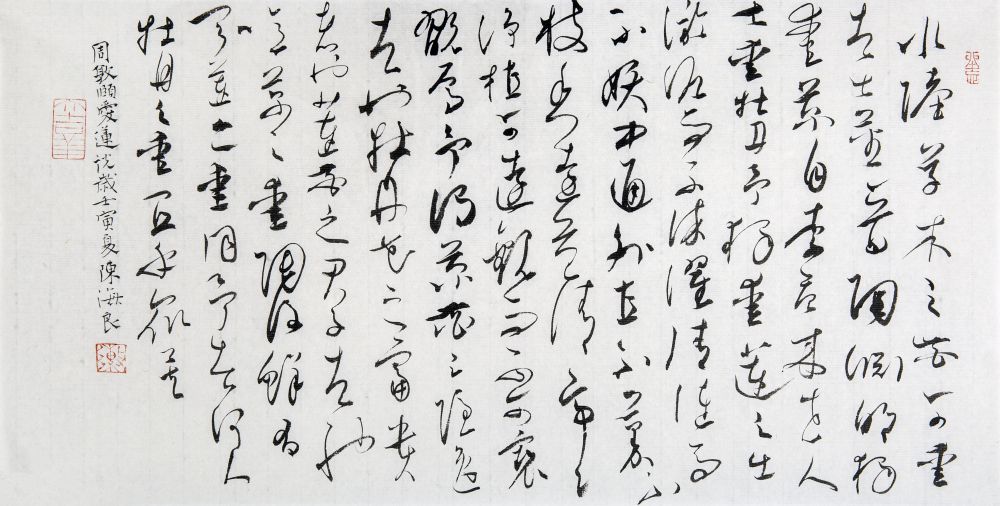 水陸草木之花可愛
者甚蕃晉陶淵明獨
愛菊自李唐來世人
甚愛牡丹予獨愛蓮之出
淤泥而不染濯清漣而
不妖中通外直不蔓不
枝香遠益清亭亭
淨植可遠觀而不可褻
翫焉予謂菊花之隱逸
者也牡丹花之富貴
者也蓮花之君子者也
噫菊之愛陶後鮮有
聞蓮之愛同予者何人
牡丹之愛宜乎衆矣
周敦頤愛蓮說歲壬寅夏陳海良